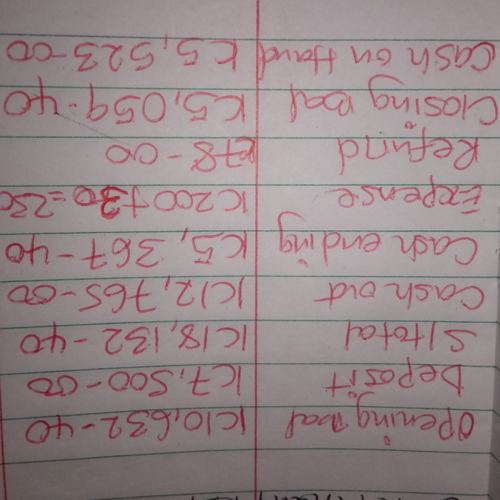 Opening bal K10,632-40
Deposit K7,500-00
S/total K18,132-40
Cash out K12,765-00
Cash ending K5,367-40
Expense K200+30=230
Refund K78-00
Closing bal K5,059-40
Cash on Hand K5,523-00